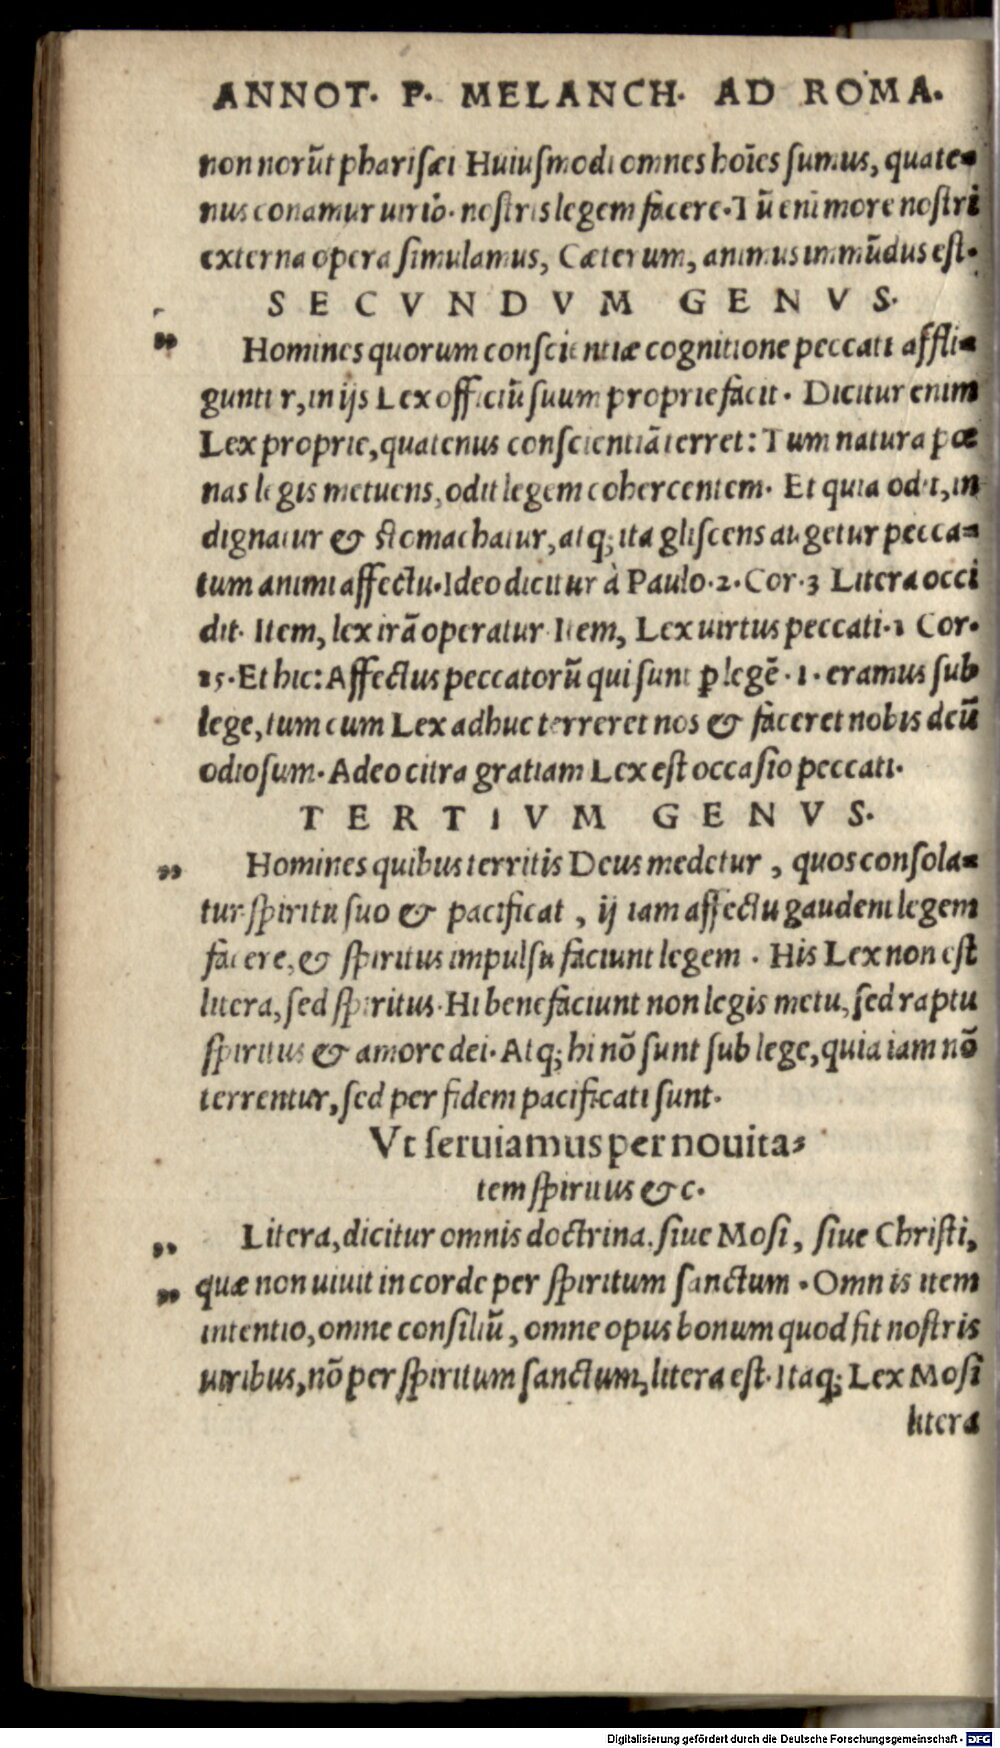 ANNOT. P. MELANCH. AD ROMA.
non norūt pharisæi Huiusmodi omnes hoīes sumus, quate-
nus conamur nostris legem facere. Tū enim ore nostri
externa opera simulamus, Cæterum, animus immūdus est.
SECVNDVM GENVS.
„ Homines quorum conscientiæ cognitione peccati affli-
guntur, in ijs Lex officiū suum proprie facit. Dicitur enim
Lex proprie, quatenus conscientiā terret: Tum natura pœ
nas legis metuens, odit legem cohercentem. Et quia odit, in
dignatur & stomachatur, atq; ita gliscens augetur pecca-
tum animi affectu. Ideo dicitur à Paulo. 2. Cor. 3 Litera occi
dit. Item, lex irā operatur Item, Lex uirtus peccati. 1 Cor.
15. Et hic: Affectus peccatorū qui sunt ꝑ legē. i. eramus sub
lege, tum cum Lex adhuc terreret nos & faceret nobis deū
odiosum. Adeo citra gratiam Lex est occasio peccati.
TERTIVM GENVS.
„ Homines quibus territis Deus medetur, quos consola-
tur spiritu suo & pacificat, ij iam affectu gaudent legem
facere, & spiritus impulsu faciunt legem. His Lex non est
litera, sed spiritus. Hi bene faciunt non legis metu, sed raptu
spiritus & amore dei. Atq; hi nō sunt sub lege, quia iam nō
terrentur, sed per fidem pacificati sunt.
Vt seruiamus per nouita-
tem spiritus & c.
„ Litera, dicitur omnis doctrina. siue Mosi, siue Christi,
„ quæ non uiuit in corde per spiritum sanctum. Omnis item
intentio, omne consiliū, omne opus bonum quod fit nostris
uiribus, nō per spiritum sanctum, litera est. Itaq; Lex Mosi
litera
Digitalisierung gefördert durch die Deutsche Forschungsgemeinschaft - DFG